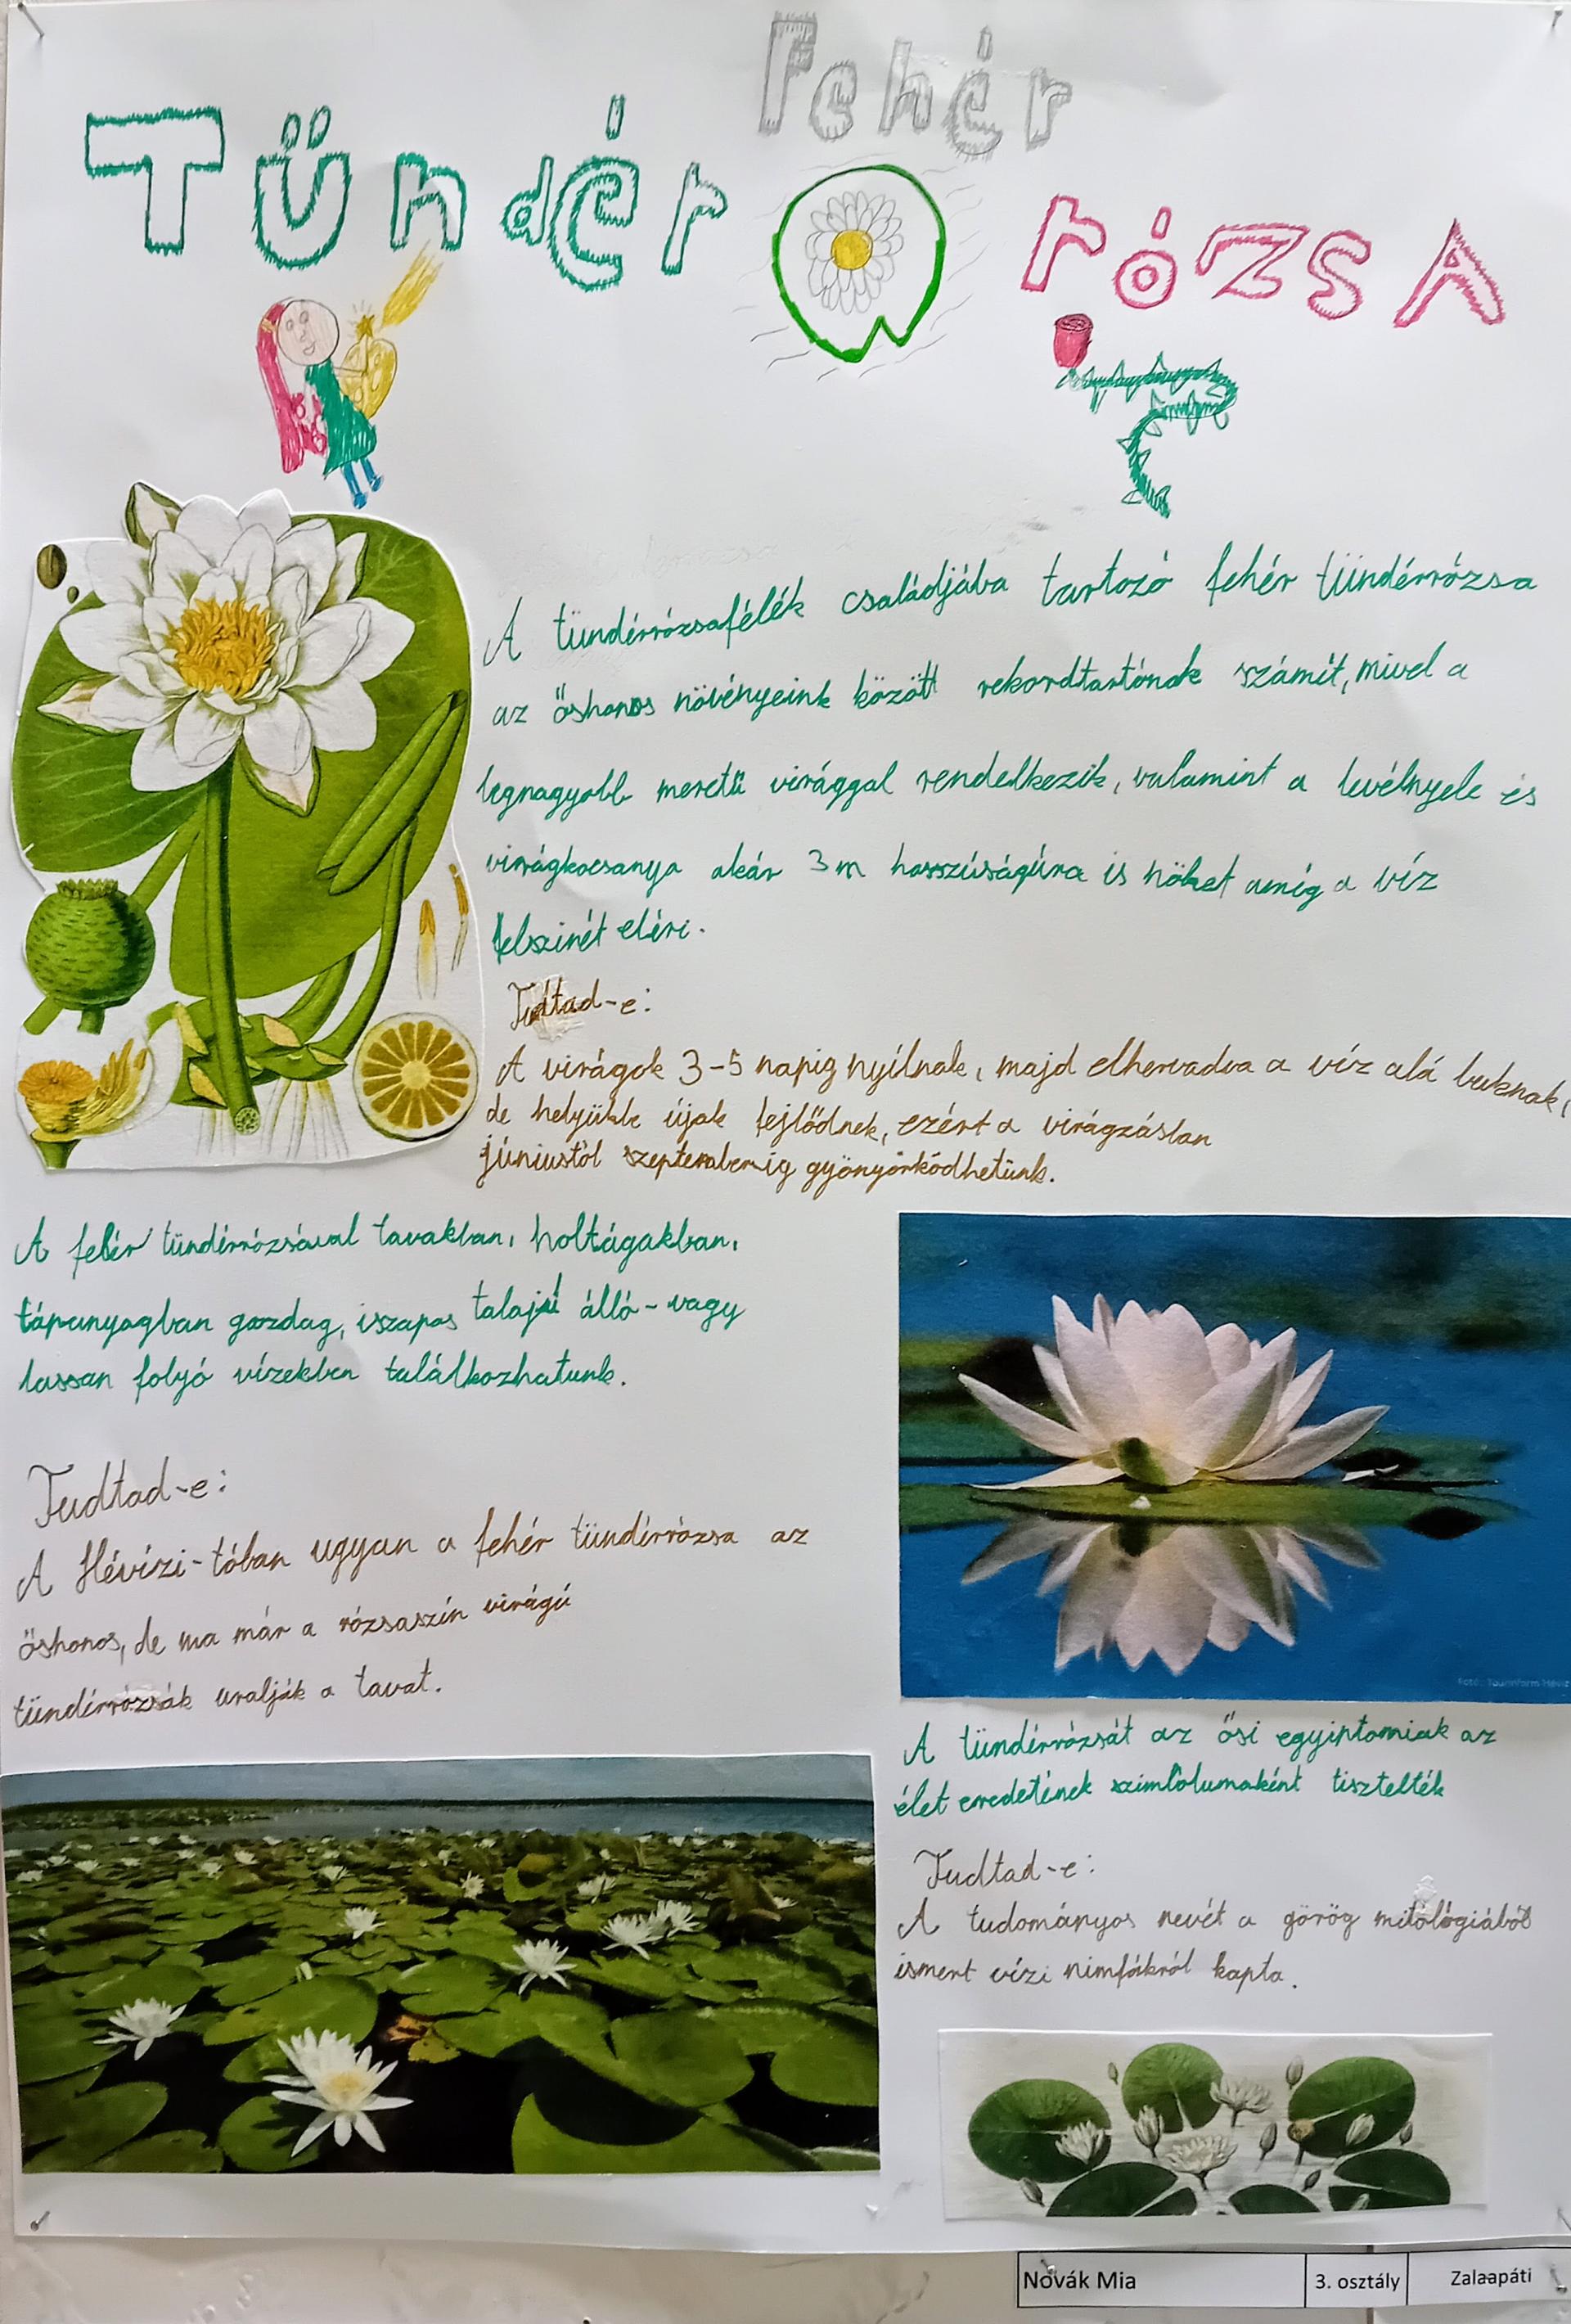 Fehér
Tündér rózsA
A tündérrózsafélék családjába tartozó fehér tündérrózsa
az őshonos növényeink között rekordtartónak számít, mivel a
legnagyobb méretű virággal rendelkezik, valamint a levélnyele és
virágkocsanya akár 3 m hosszúságúra is nőhet amíg a víz
felszínét eléri.
Tudtad-e:
A virágok 3-5 napig nyílnak, majd elhervadva a víz alá buknak,
de helyükbe újak fejlődnek, ezért a virágzásban
júniustól szeptemberig gyönyörködhetünk.
A fehér tündérrózsával tavakban, holtágakban,
tápanyagban gazdag, iszapos talajú álló- vagy
lassan folyó vizekben találkozhatunk.
Tudtad-e:
A Hévízi-tóban ugyan a fehér tündérrózsa az
őshonos, de ma már a rózsaszín virágú
tündérrózsák uralják a tavat.
Fotó: Tourinform Hévíz
A tündérrózsát az ősi egyiptomiak az
élet eredetének szimbolumaként tisztelték
Tudtad-e:
A tudományos nevét a görög mitológiából
ismert vízi nimfákról kapta.
Novák Mia 3. osztály Zalaapáti